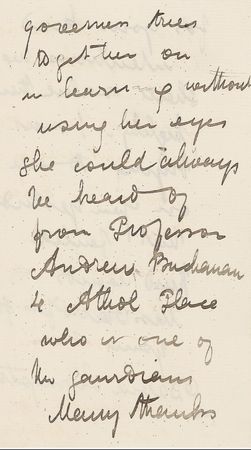 governess tries
to get her on
in learning without
using her eyes
she could always
be heard of
from Professor
Andrew Buchanan
4 Athol Place
who is one of
the gaurdians
Many thanks